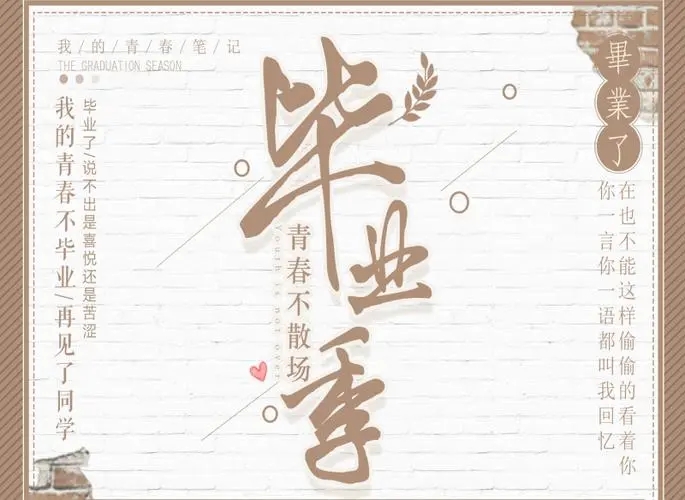 我/的/青/春/笔/记
THE GRADUATION SEASON
毕业了/说不出是喜悦还是苦涩
我的青春不毕业/再见了同学
毕业季
青春不散场
Youth is not over
畢業了
在也不能这样偷偷的看着你
你一言你一语都叫我回忆